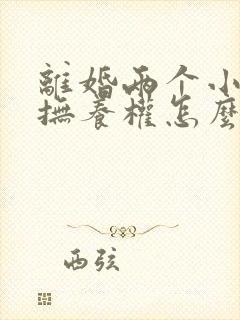 離婚兩个小
撫養權怎麼
西弦